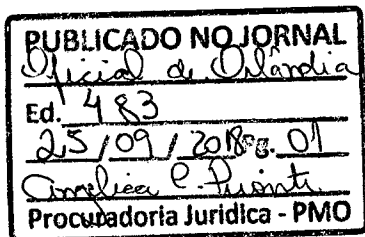 PUBLICADO NO JORNAL
Oficial de Orlândia
Ed. 483
25/09/2018 Pg. 01
Angélica C.
Procuradoria Juridica - PMO